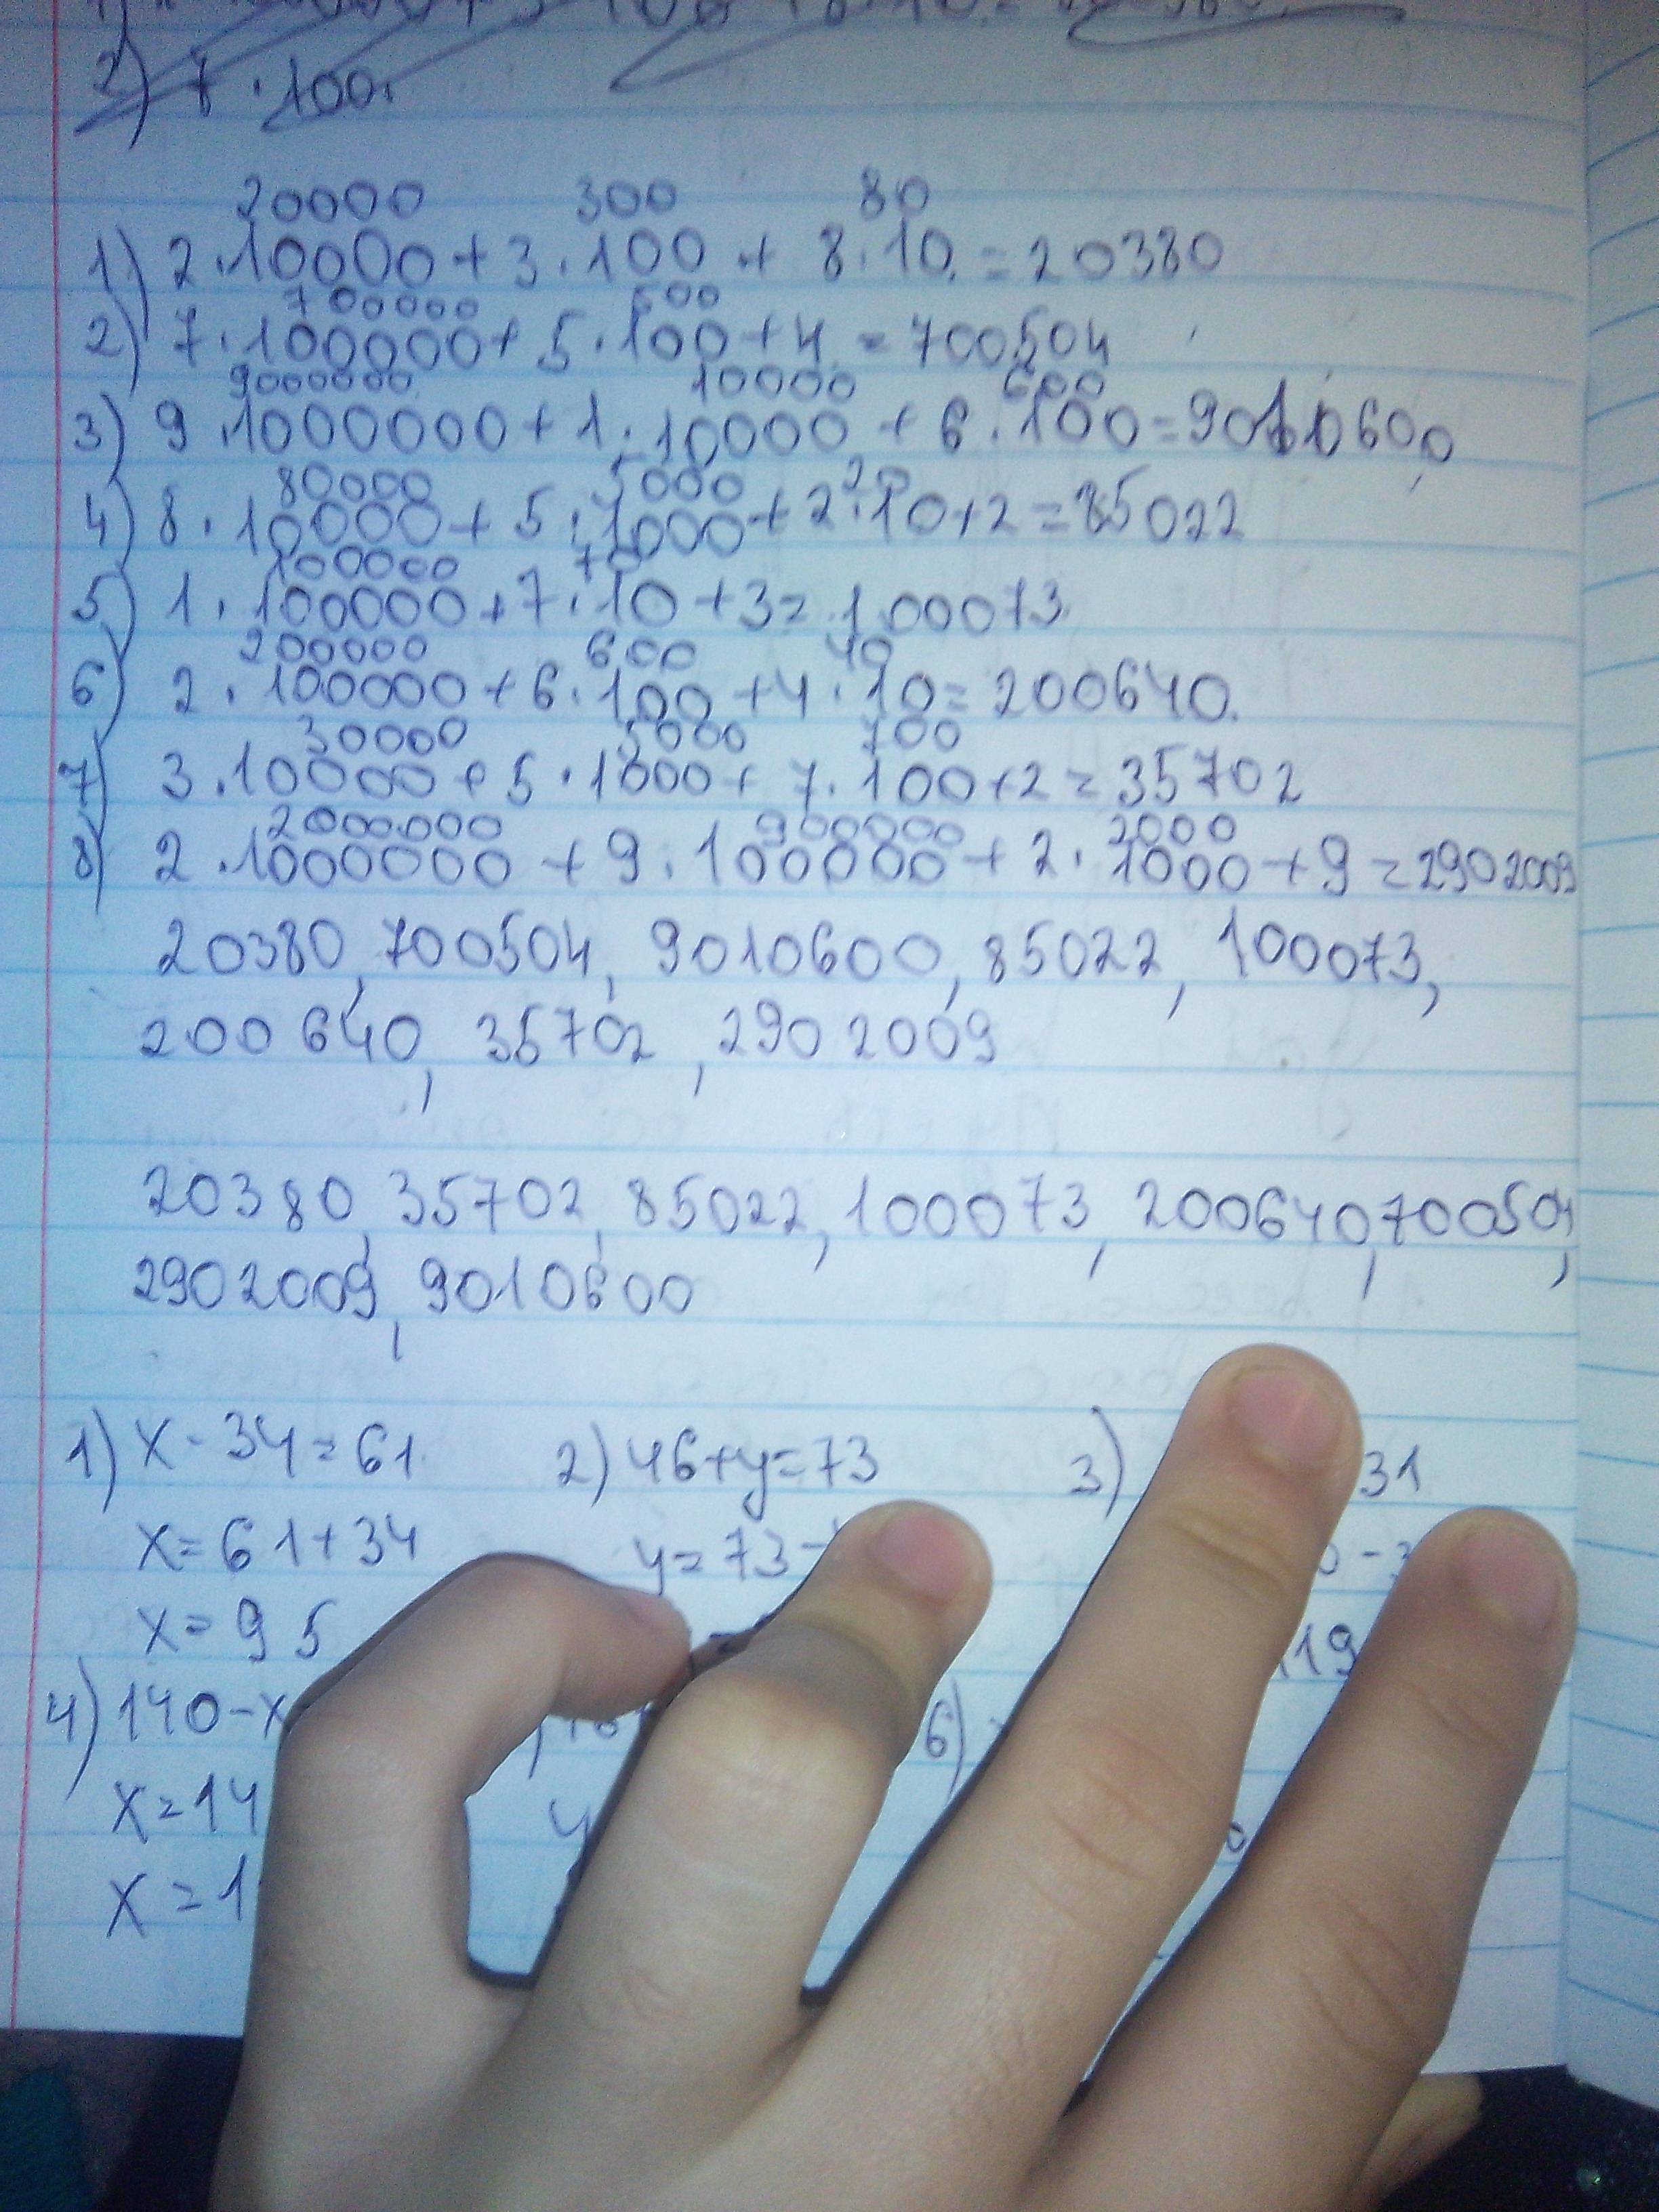 2) 8 · 100.
20000 300 80
1) 2 · 10000 + 3 · 100 + 8 · 10 = 20380
700000 500
2) 7 · 100000 + 5 · 100 + 4 = 700504
9000000 10000 600
3) 9 · 1000000 + 1 · 10000 + 6 · 100 = 9010600
80000 5000 20
4) 8 · 10000 + 5 · 1000 + 2 · 10 + 2 = 85022
100000 70
5) 1 · 100000 + 7 · 10 + 3 = 100073
200000 600 40
6) 2 · 100000 + 6 · 100 + 4 · 10 = 200640.
30000 5000 700
7) 3 · 10000 + 5 · 1000 + 7 · 100 + 2 = 35702
2000000 900000 2000
8) 2 · 1000000 + 9 · 100000 + 2 · 1000 + 9 = 2902009
20380, 700504, 9010600, 85022, 100073,
200640, 35702, 2902009
20380, 35702, 85022, 100073, 200640, 700504,
2902009, 9010600
1) x - 34 = 61 2) 46 + y = 73 3) 31
x = 61 + 34 y = 73 -
x = 95 119
4) 140 - x 6)
x = 14
x = 1